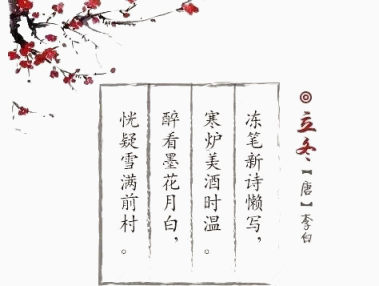 立冬
【唐】李白
冻笔新诗懒写，
寒炉美酒时温。
醉看墨花月白，
恍疑雪满前村。